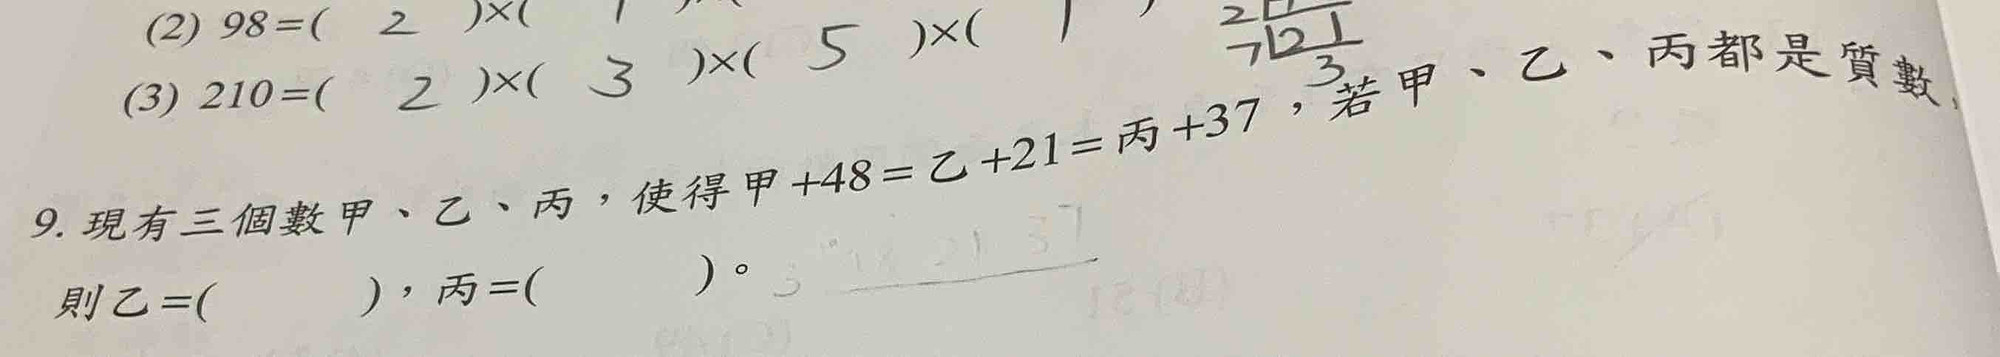 (2) 98=( 2 )×( 1
(3) 210=( 2 )×( 3 )×( 5 )×(
2
7 21
3
9. 現有三個數甲、乙、丙，使得甲+48=乙+21=丙+37，若甲、乙、丙都是質數，
則乙=( )，丙=( )。
3 48 21 37